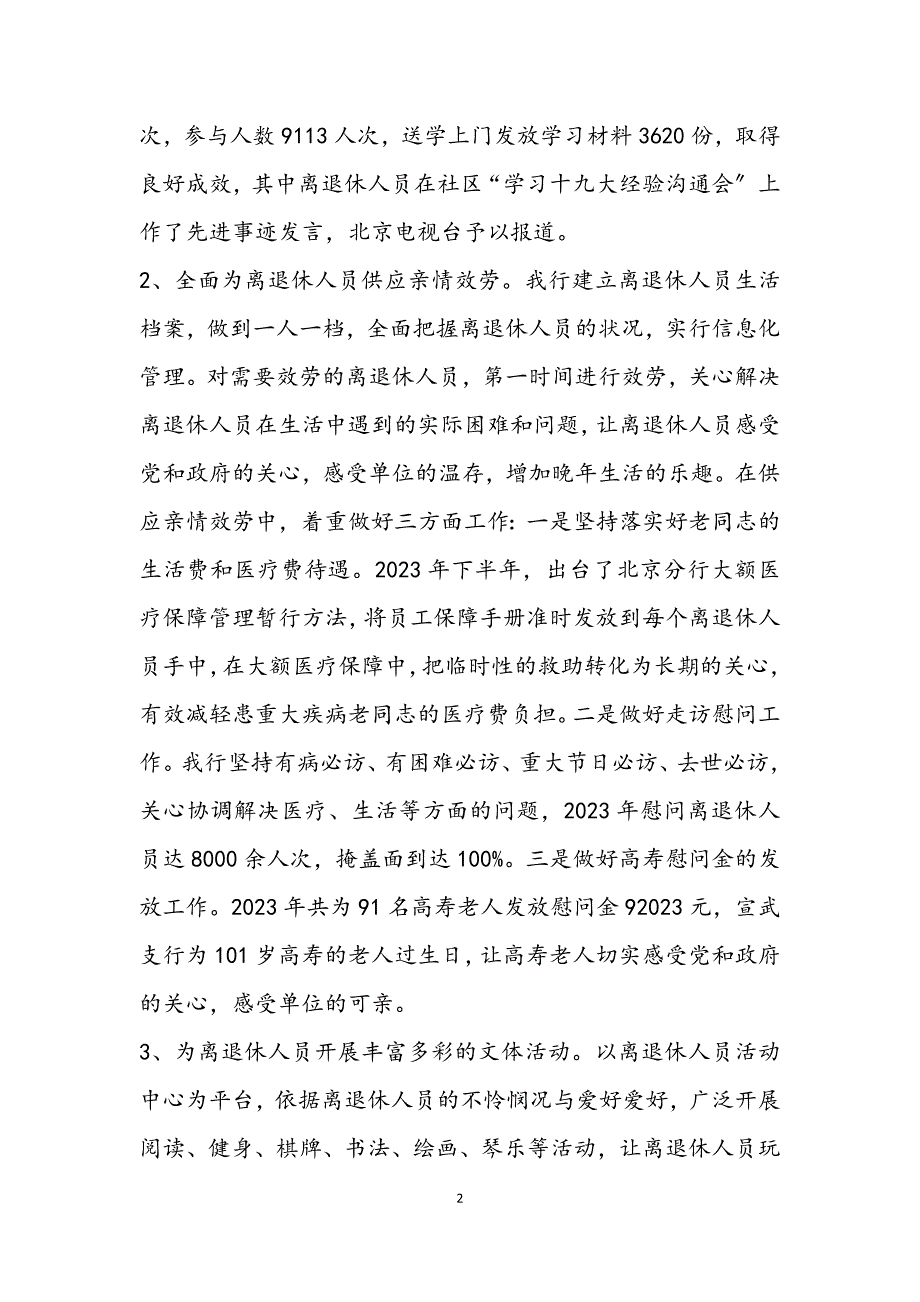 次，参与人数 9113 人次，送学上门发放学习材料 3620 份，取得
良好成效，其中离退休人员在社区“学习十九大经验沟通会〞上
作了先进事迹发言，北京电视台予以报道。
2、全面为离退休人员供应亲情效劳。我行建立离退休人员生活
档案，做到一人一档，全面把握离退休人员的状况，实行信息化
管理。对需要效劳的离退休人员，第一时间进行效劳，关心解决
离退休人员在生活中遇到的实际困难和问题，让离退休人员感受
党和政府的关心，感受单位的温存，增加晚年生活的乐趣。在供
应亲情效劳中，着重做好三方面工作：一是坚持落实好老同志的
生活费和医疗费待遇。2023 年下半年，出台了北京分行大额医
疗保障管理暂行方法，将员工保障手册准时发放到每个离退休人
员手中，在大额医疗保障中，把临时性的救助转化为长期的关心，
有效减轻患重大疾病老同志的医疗费负担。二是做好走访慰问工
作。我行坚持有病必访、有困难必访、重大节日必访、去世必访，
关心协调解决医疗、生活等方面的问题，2023 年慰问离退休人
员达 8000 余人次，掩盖面到达 100%。三是做好高寿慰问金的发
放工作。2023 年共为 91 名高寿老人发放慰问金 92023 元，宣武
支行为 101 岁高寿的老人过生日，让高寿老人切实感受党和政府
的关心，感受单位的可亲。
3、为离退休人员开展丰富多彩的文体活动。以离退休人员活动
中心为平台，依据离退休人员的不怜悯况与爱好爱好，广泛开展
阅读、健身、棋牌、书法、绘画、琴乐等活动，让离退休人员玩
2